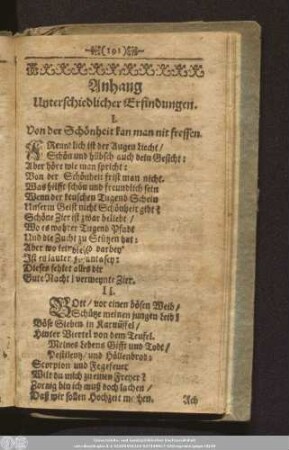 (191)
Anhang
Unterschiedlicher Erfindungen.
I.
Von der Schönheit kan man nit fressen.
FReundlich ist der Augen liecht /
Schön und hübsch auch dein Gesicht:
Aber höre wie man spricht:
Von der Schönheit frist man nicht.
Was hilfft schön und freundlich sein
Wenn der keuschen Tugend Schein
Unserm Geist nicht Schönheit gibt?
Schöne Zier ist zwar beliebt /
Wo es wahrer Tugend Pfadt
Und die Zucht zu Stützen hat:
Aber wo kein dieser darbey
Ist ein lauter Fantasey:
Dieses fehlet alles dir
Gute Nacht / vermeynte Zier.
II.
GOtt / vor einen bösen Weib /
Schütze meinen jungen Leib!
Böse Sieben in Karnüffel /
Hinter Viertel von dem Teufel.
Meines Lebens Gifft und Todt /
Pestilentz / und Höllenbrod:
Scorpion und Fegefeuer
Wilt du mich zu einen Freyer?
Zornig bin ich muß doch lachen /
Daß wir sollen Hochzeit machen.
Ach